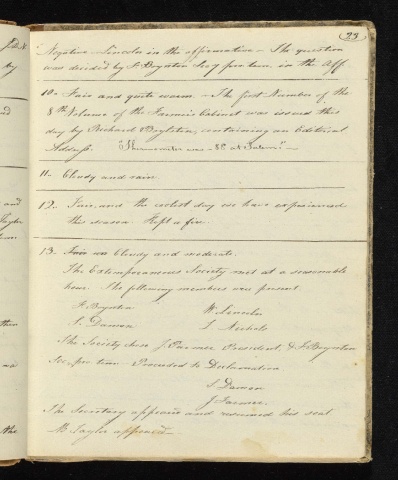 23
Negative - Lincoln in the affirmative - The question
was decided by J. Boynton Secy pro. tem. in the Aff.
10. Fair and quite warm. - The first Number of the
8th Volume of the Farmer's Cabinet was issued this
day by Richard Boylston, containing an Editorial
Address. "Thermometer was 82 at Salem" -
11. Cloudy and rain.
12. Fair, and the coolest day we have experienced
this season. Kept a fire.
13. Fair Cloudy and moderate.
The Extemporaneous Society met at a seasonable
hour. The following members were present
J. Boynton W. Lincoln
S. Damon L. Nichols
The Society chose J. Farmer President, & J. Boynton
Sec. pro tem. Proceeded to Declamation
S. Damon
J. Farmer.
The Secretary appeared and resumed his seat.
Taylor appeared.